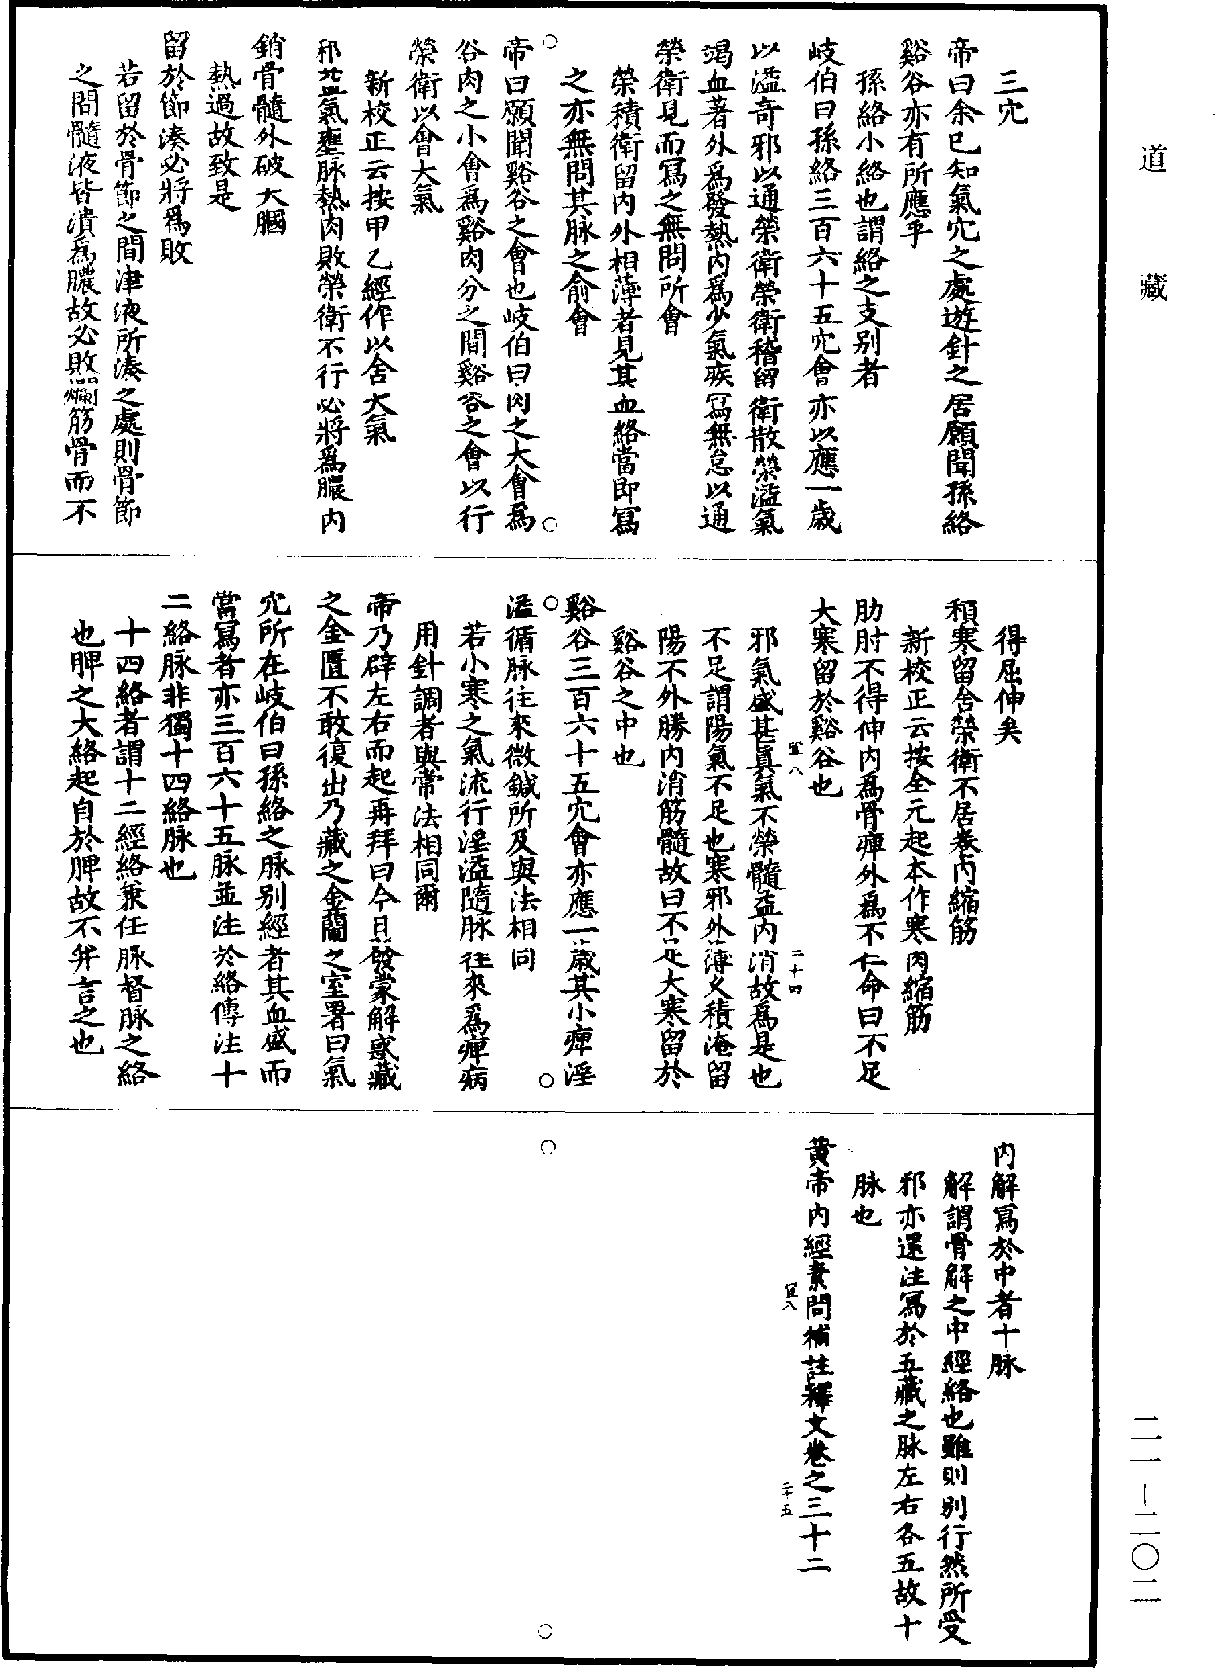 道藏
三穴
帝曰余已知氣穴之處遊針之居願聞孫絡
谿谷亦有所應乎
孫絡小絡也謂絡之支別者
岐伯曰孫絡三百六十五穴會亦以應一歲
以溢奇邪以通榮衛榮衛稽留衛散榮溢氣
竭血著外爲發熱內爲少氣疾寫無怠以通
榮衛見而寫之無問所會
榮積衛留內外相薄者見其血絡當即寫
之亦無問其脉之俞會
帝曰願聞谿谷之會也岐伯曰肉之大會爲
谷肉之小會爲谿肉分之間谿谷之會以行
榮衛以會大氣
新校正云按甲乙經作以舍大氣
邪溢氣壅脉熱肉敗榮衛不行必將爲膿內
銷骨髓外破大膕
熱過故致是
留於節湊必將爲敗
若留於骨節之間津液所湊之處則骨節
之間髓液皆潰爲膿故必敗爛筋骨而不
得屈伸矣
積寒留舍榮衛不居卷肉縮筋
新校正云按全元起本作寒肉縮筋
肋肘不得伸內爲骨痺外爲不仁命曰不足
大寒留於谿谷也
邪氣盛甚真氣不榮髓益內消故爲是也
不足謂陽氣不足也寒邪外薄久積淹留
陽不外勝內消筋髓故曰不足大寒留於
谿谷之中也
谿谷三百六十五穴會亦應一歲其小痺淫
溢循脉往來微鍼所及與法相同
若小寒之氣流行淫溢隨脉往來爲痺病
用針調者與常法相同爾
帝乃辟左右而起再拜曰今日發蒙解惑藏
之金匱不敢復出乃藏之金蘭之室署曰氣
穴所在岐伯曰孫絡之脉別經者其血盛而
當寫者亦三百六十五脉並注於絡傳注十
二絡脉非獨十四絡脉也
十四絡者謂十二經絡兼任脉督脉之絡
也脾之大絡起自於脾故不并言之也
內解寫於中者十脉
解謂骨解之中經絡也雖則別行然所受
邪亦還注寫於五藏之脉左右各五故十
脉也
黃帝內經素問補註釋文卷之三十二
二一—二〇二